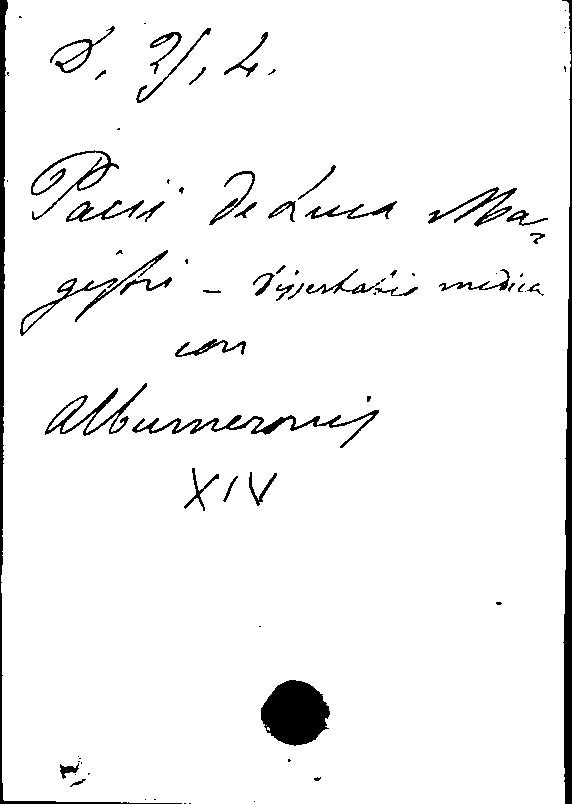 D, 2/, 4.
Pacis de Luca Ma-
gistri - dissertatio medica
con
Albumeronis
XIV